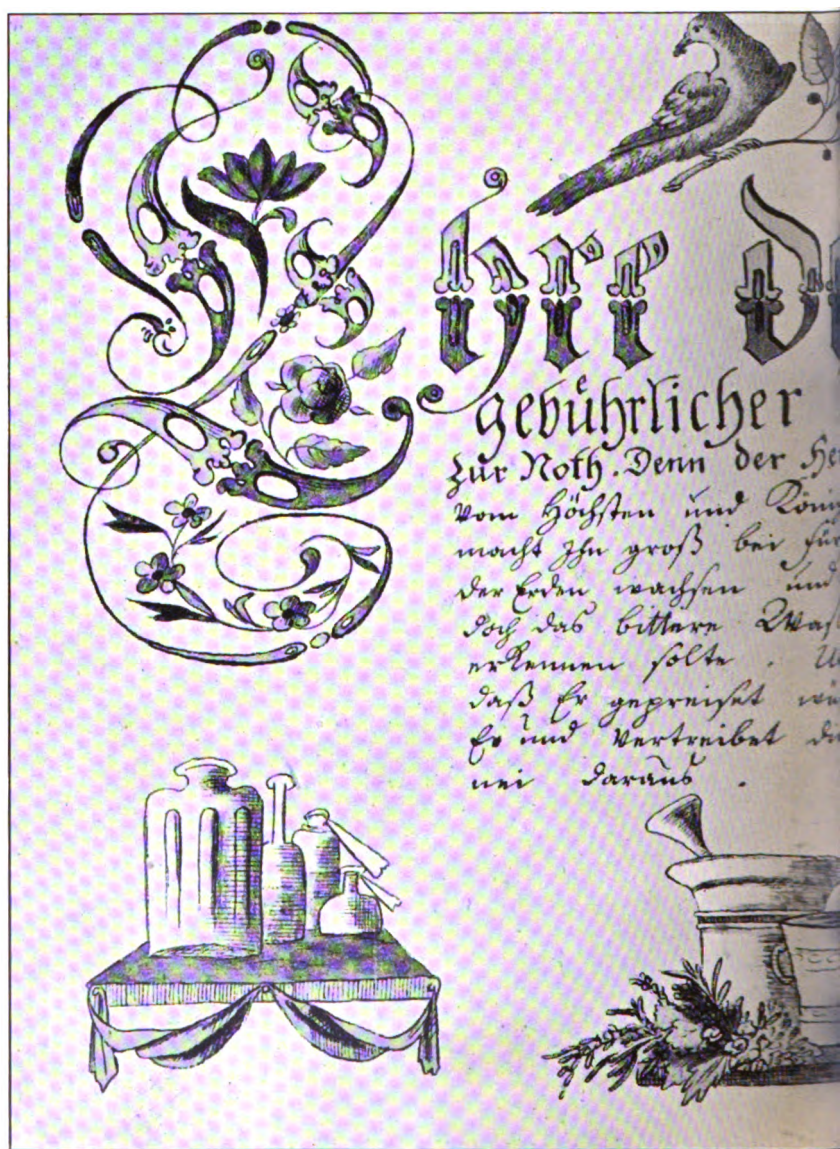 Ehre de
gebührlicher
zur Noth. Denn der He
vom Höchsten und Kön
macht Ihn groß bei Für
der Erden wachsen und
doch das bittere Waß
erkennen solte . U
daß Er gepreiset wü
Er und vertreibet da
nei daraus .